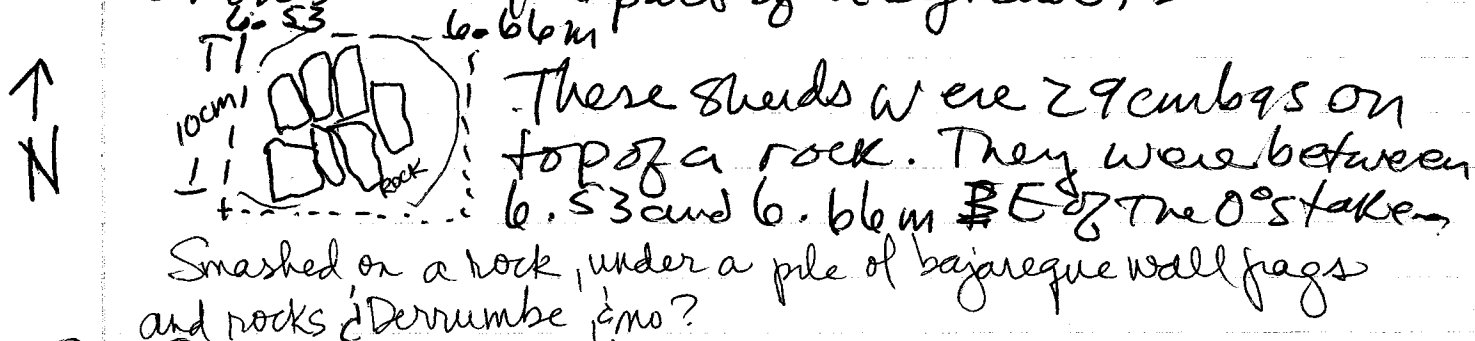 part of
6.53
6.66m
10cm
N
ROCK
These sherds were 29cmbgs on
top of a rock. They were between
6.53 and 6.66m E of the 0° stake
Smashed on a rock, under a pile of bajareque wall frags
and rocks ¿Derrumbe, ¿no?